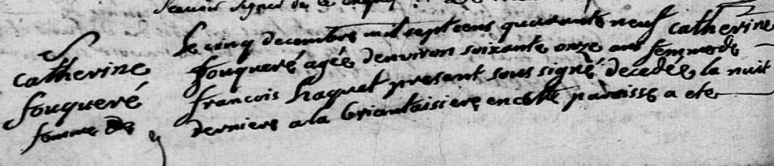 sçavoir signer de ce enquis
S
Catherine
fouqueré
femme de
Le cinq decembre mil sept cens quarante neuf Catherine
fouqueré agée d'environ soixante onze ans femme de
francois haquet present soussigné decedée la nuit
derniere a la briantaisiere en cette paroisse a ete